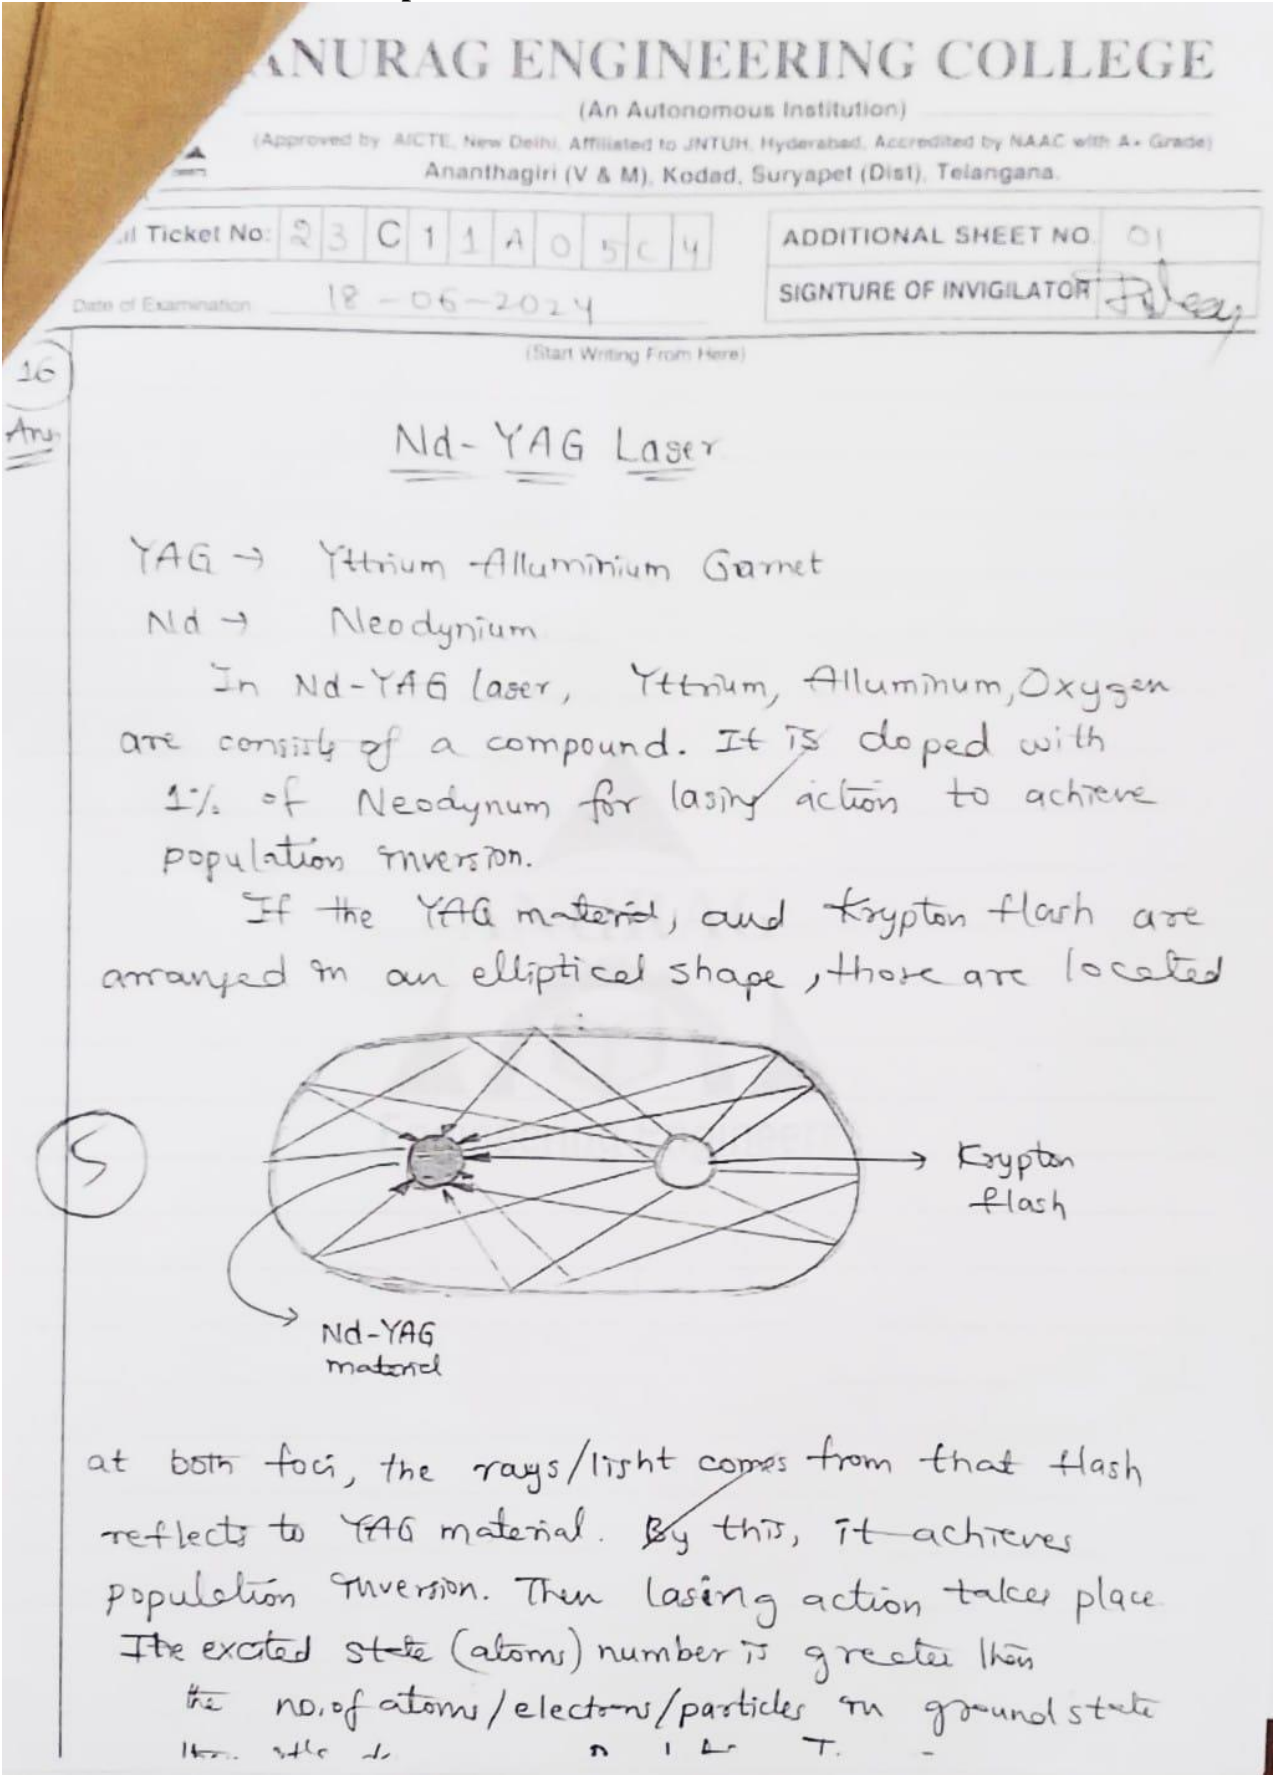 ANURAG ENGINEERING COLLEGE
(An Autonomous Institution)
(Approved by AICTE, New Delhi, Affiliated to JNTUH, Hyderabad, Accredited by NAAC with A+ Grade)
Ananthagiri (V & M), Kodad, Suryapet (Dist), Telangana.
Ticket No: 23C11A05C4
ADDITIONAL SHEET NO. 01
Date of Examination 18-06-2024
SIGNTURE OF INVIGILATOR
(Start Writing From Here)
16
Ans
Nd-YAG Laser
YAG → Yttrium Alluminium Garnet
Nd → Neodynium
In Nd-YAG laser, Yttrium, Alluminum, Oxygen
are consists of a compound. It is doped with
1% of Neodynum for lasing action to achieve
population inversion.
If the YAG material, and Krypton flash are
arranged in an elliptical shape, those are located
5
Krypton
flash
Nd-YAG
material
at both foci, the rays/light comes from that flash
reflects to YAG material. By this, it achieves
population inversion. Then lasing action takes place
The excited state (atoms) number is greater then
the no. of atoms/electrons/particles in ground state